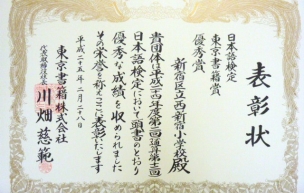 表彰状
日本語検定
東京書籍賞
優秀賞
新宿区立西新宿小学校殿
貴団体は平成二十四年度第二回通算第十二回
日本語検定において頭書のとおり
優秀な成績を収められました
その栄誉を称えここに表彰いたします
平成二十五年二月二十八日
東京書籍株式会社
代表取締役社長 川畑慈範